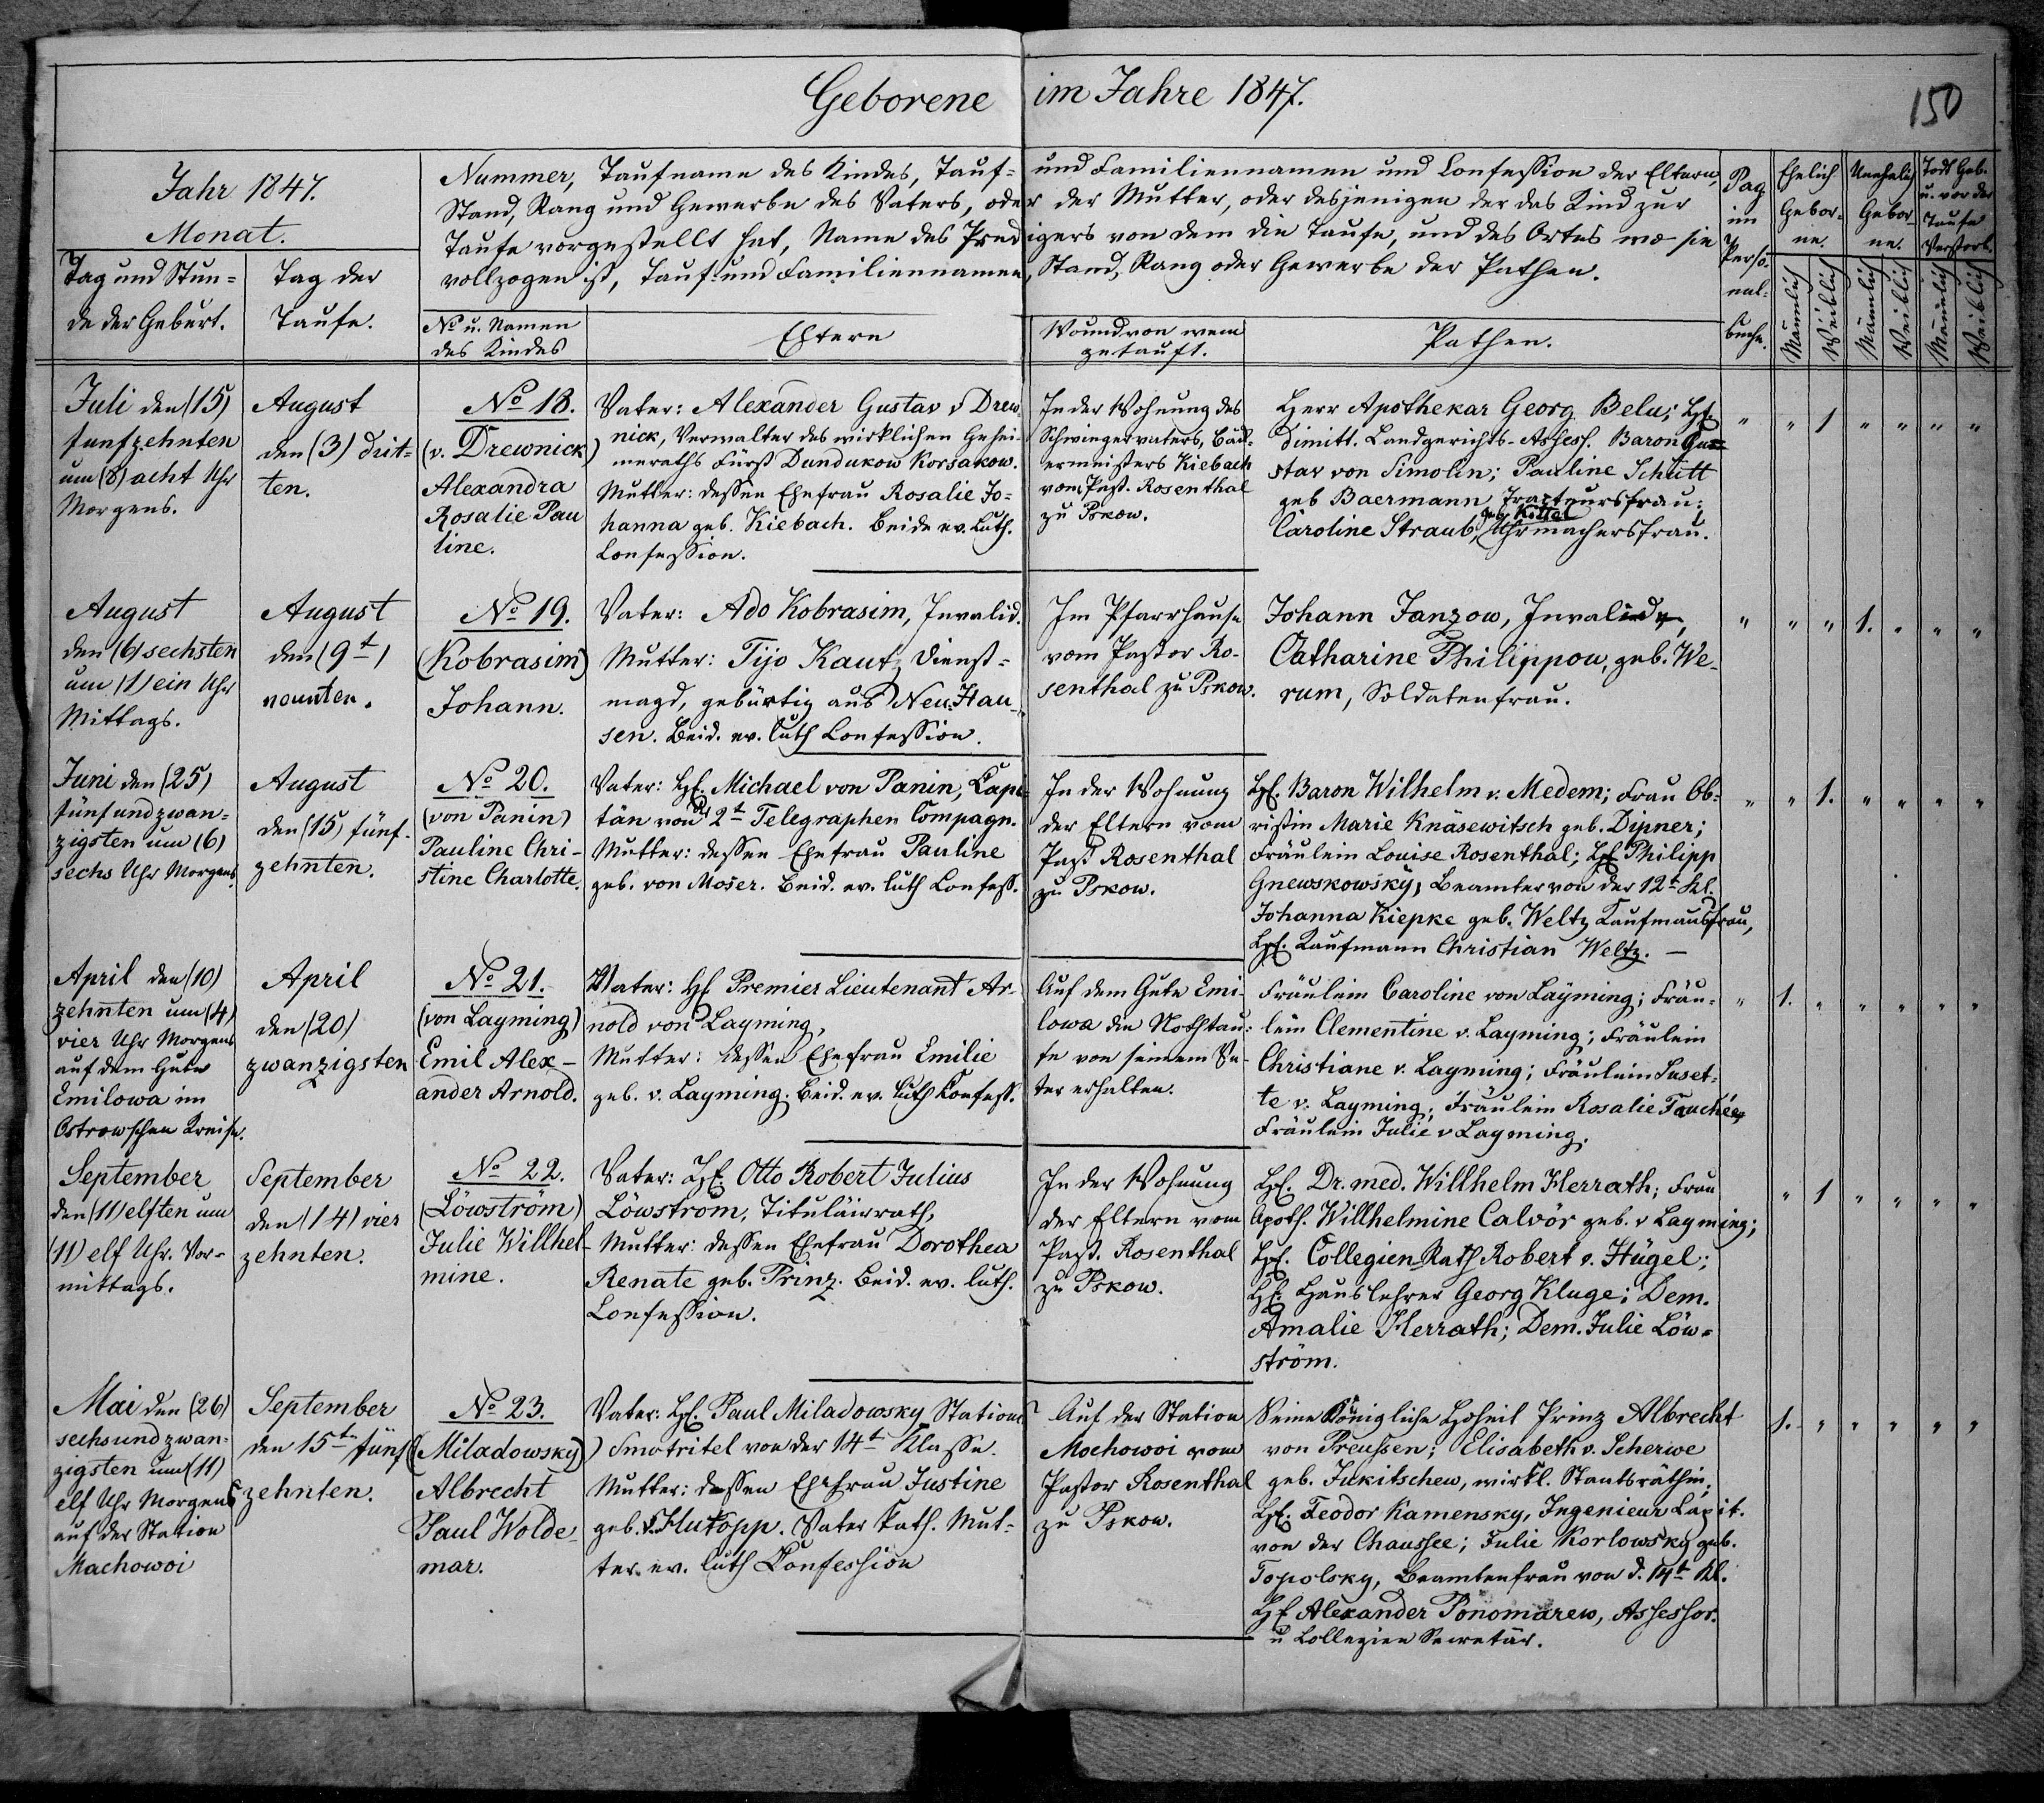 Geborene im Jahre 1847.
150
Jahr 1847.
Monat.
Tag und Stun=
de der Geburt.
Tag der
Taufe.
Nummer, Taufname des Kindes, Tauf= und Familiennamen und Confession der Eltern,
Stand, Rang und Gewerbe des Vaters, oder der Mutter, oder desjenigen der das Kind zur
Taufe vorgestellt hat, Name des Predigers von dem die Taufe, und des Ortes wo sie
vollzogen ist, Tauf= und Familiennamen, Stand, Rang oder Gewerbe der Pathen.
No u. Namen
des Kindes
Eltern
Wo und von wem
getauft.
Pathen.
Pag
im
Perso=
nal=
buche.
Ehelich
Gebor=
ne.
Unehelich
Gebor=
ne.
Todt Geb.
u. vor der
Taufe
Verstorb.
Männlich
Weiblich
Männlich
Weiblich
Männlich
Weiblich
Juli den (15)
funfzehnten
um (8) acht Uhr
Morgens.
August
den (3) drit=
ten.
No 18.
(v. Drewnick)
Alexandra
Rosalie Pau
line.
Vater: Alexander Gustav v Drew=
nick, Verwalter des wirklichen Gehei=
meraths Fürst Dundukow Korsakow.
Mutter: dessen Ehefrau Rosalie Jo=
hanna geb. Kiebach. Beide ev. luth.
Confession.
In der Wohnung des
Schwiegervaters, Bäck=
ermeisters Kiebach
vom Past. Rosenthal
zu Pskow.
Herr Apothekar Georg Belu; Hf.
Dimitt. Landgerichts-Assess. Baron Gus=
stav von Simolin; Pauline Schutt
geb Baermann, Tracteursfrau;
Caroline Straub, geb. Kittel Uhrmachersfrau.
" " 1 " " " "
August
den (6) sechsten
um (1) ein Uhr
Mittags.
August
den (9t)
neunten.
No 19.
(Kobrasim)
Johann.
Vater: Ado Kobrasim, Invalid.
Mutter: Tijo Kautz, Dienst=
magd, gebürtig aus Neu-Hau=
sen. Beid. ev. luth Confession.
Im Pfarrhause
vom Pastor Ro=
senthal zu Pskow.
Johann Janzow, Invalide,
Catharine Philippow, geb. We=
rum, Soldatenfrau.
" " " 1. " " "
Juni den (25)
fünfundzwan=
zigsten um (6)
sechs Uhr Morgens.
August
den (15) fünf=
zehnten.
No 20.
(von Panin)
Pauline Chri=
stine Charlotte.
Vater: Hf. Michael von Panin, Capi=
tän von d 2t Telegraphen Compagn.
Mutter: dessen Ehefrau Pauline
geb. von Moser. Beid. ev. luth Confess.
In der Wohnung
der Eltern vom
Past Rosenthal
zu Pskow.
Hf. Baron Wilhelm v. Medem; Frau Ob=
ristin Marie Knäsewitsch geb. Dipner;
Fräulein Louise Rosenthal; Hf. Philipp
Gnewskowsky, Beamter von der 12t Kl.
Johanna Kiepke geb. Weltz Kaufmannsfrau,
Hf. Kaufmann Christian Weltz. —
" " 1. " " " "
April den (10)
zehnten um (4)
vier Uhr Morgens
auf dem Gute
Emilowa im
Ostrowschen Kreise.
April
den (20)
zwanzigsten
No 21.
(von Layming)
Emil Alex=
ander Arnold.
Vater: Hf Premier Lieutenant Ar=
nold von Layming,
Mutter: dessen Ehefrau Emilie
geb. v. Layming. Beid. ev. luth Confess.
Auf dem Gute Emi=
lowa die Nothtau=
fe von seinem Va=
ter erhalten.
Fräulein Caroline von Layming; Fräu=
lein Clementine v. Layming; Fräulein
Christiane v. Layming; Fräulein Suset=
te v. Layming; Fräulein Rosalie Fauchée,
Fräulein Julie v Layming.
" 1. " " " " "
September
den (11) elften um
(11) elf Uhr. Vor=
mittags.
September
den (14) vier
zehnten.
No 22.
(Löwström)
Julie Willhel=
mine.
Vater: Hf. Otto Robert Julius
Löwström, Tituläirrath,
Mutter: dessen Ehefrau Dorothea
Renate geb. Prinz. Beid. ev. luth.
Confession.
In der Wohnung
der Eltern vom
Past. Rosenthal
zu Pskow.
Hf. Dr. med. Willhelm Herrath; Frau
Apoth. Willhelmine Calvör geb. v Layming;
Hf. Collegien-Rath Robert v. Hügel;
Hf. Hauslehrer Georg Kluge; Dem.
Amalie Herrath; Dem. Julie Löw=
ström.
" 1 " " " "
Mai den (26)
sechsundzwan=
zigsten um (11)
elf Uhr Morgens
auf der Station
Machowoi
September
den 15t fünf
zehnten.
No 23.
(Miladowsky)
Albrecht
Paul Wolde
mar.
Vater: Hf. Paul Miladowsky Stations
Smotritel von der 14t Klasse.
Mutter: dessen Ehefrau Justine
geb. v. Hutopp. Vater kath. Mut=
ter ev. luth Confession
Auf der Station
Mochowoi vom
Pastor Rosenthal
zu Pskow.
Seine Königliche Hoheit Prinz Albrecht
von Preussen; Elisabeth v. Scherwe
geb. Jukitschew, wirkl. Staatsräthin;
Hf. Teodor Kamensky, Ingenieur Capit.
von der Chaussee; Julie Korlowsky geb.
Topolsky, Beamtenfrau von d. 14t Kl.
Hf Alexander Ponomarew, Assessor.
u Collegien Secretär.
1. " " " " "